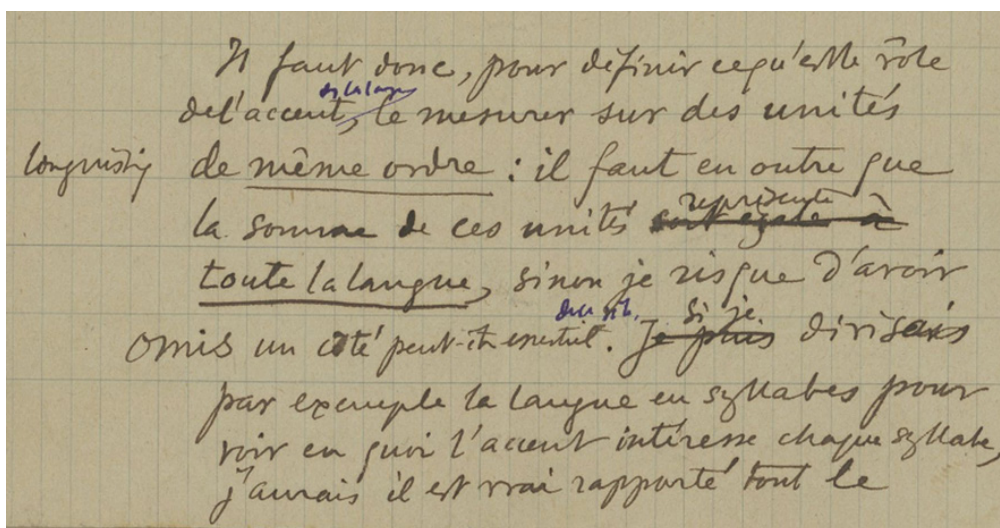 Il faut donc, pour définir ce qu'est le rôle
de l'accent, le mesurer sur des unités
de même ordre : il faut en outre que
la somme de ces unités soit égale à représente
toute la langue, sinon je risque d'avoir
omis un côté peut-êt essentiel. Je puis Si je divisais
par exemple la langue en syllabes pour
voir en quoi l'accent intéresse chaque syllabe,
j'aurais il est vrai rapporté tout le